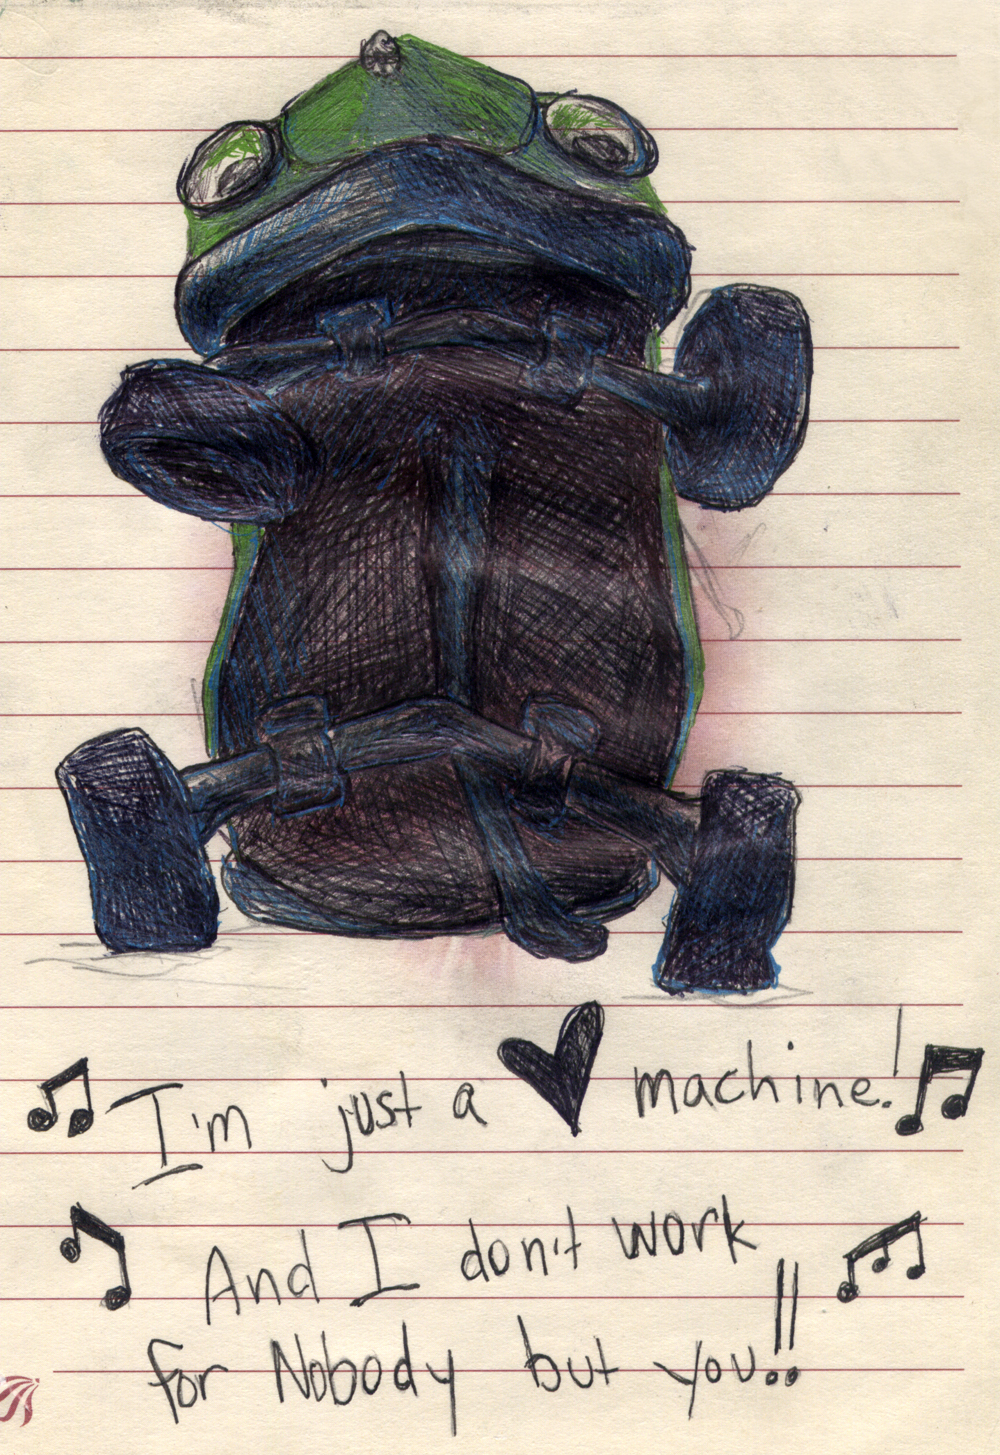 I'm just a ♥ machine!
And I don't work
for Nobody but you!!